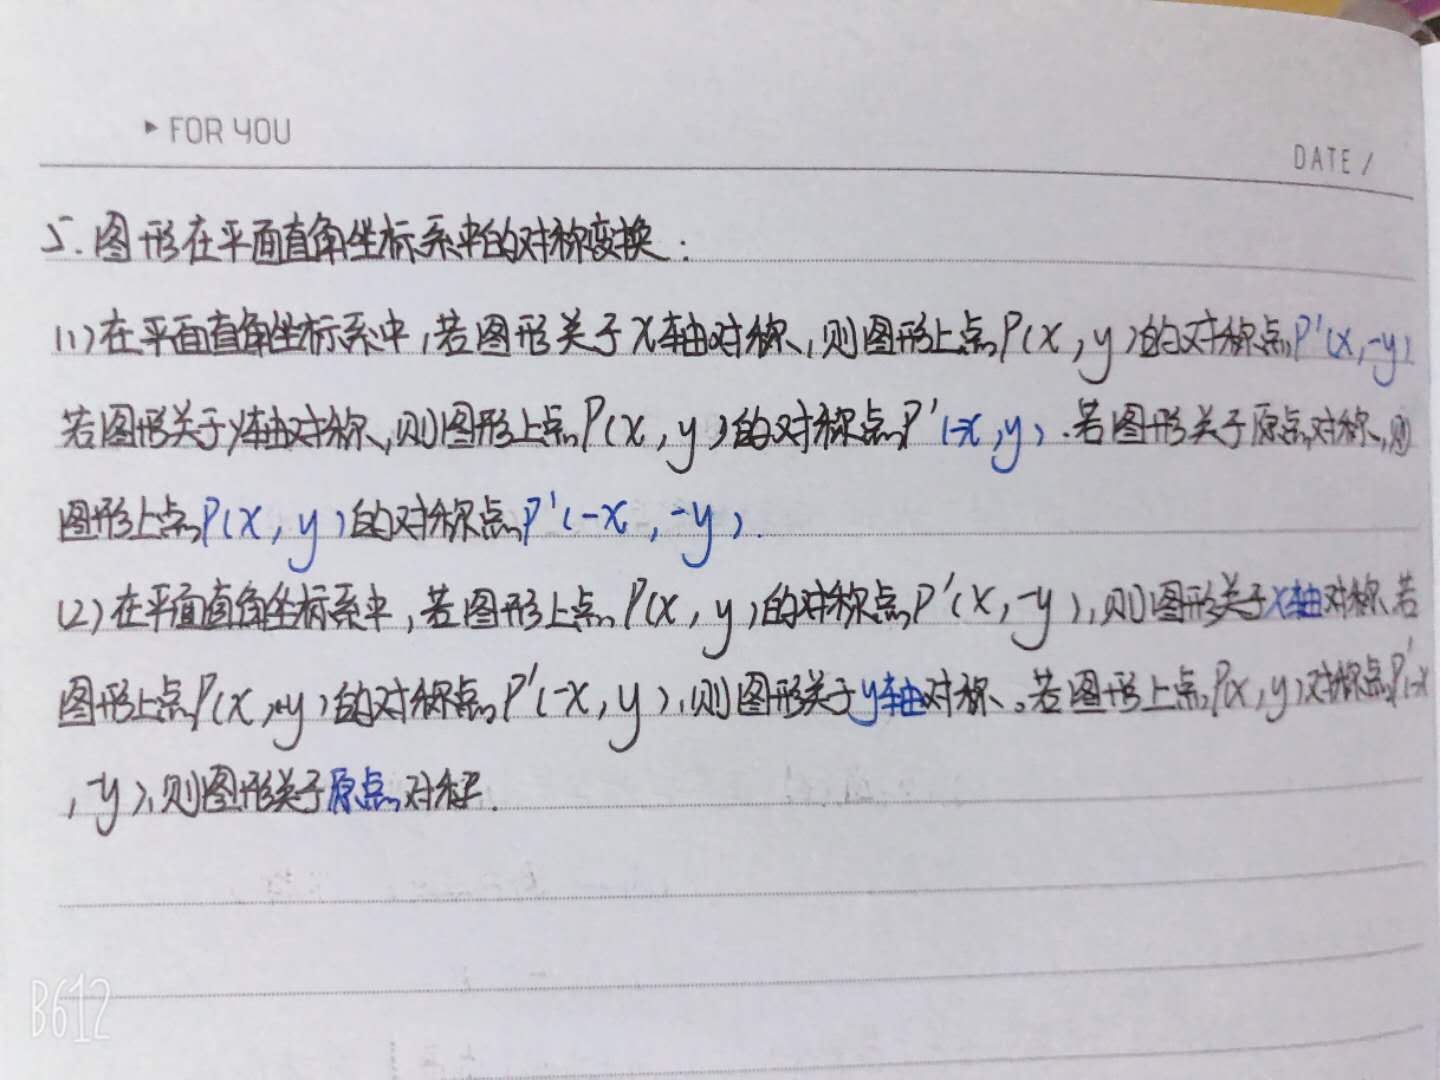 FOR YOU
DATE /
5.图形在平面直角坐标系中的对称变换:
(1)在平面直角坐标系中,若图形关于x轴对称,则图形上点P(x,y)的对称点P'(x,-y)
若图形关于y轴对称,则图形上点P(x,y)的对称点P'(-x,y).若图形关于原点对称,则
图形上点P(x,y)的对称点P'(-x,-y).
(2)在平面直角坐标系中,若图形上点P(x,y)的对称点P'(x,-y),则图形关于x轴对称.若
图形上点P(x,y)的对称点P'(-x,y),则图形关于y轴对称。若图形上点P(x,y)对称点P'(-x
,-y),则图形关于原点对称.
B612